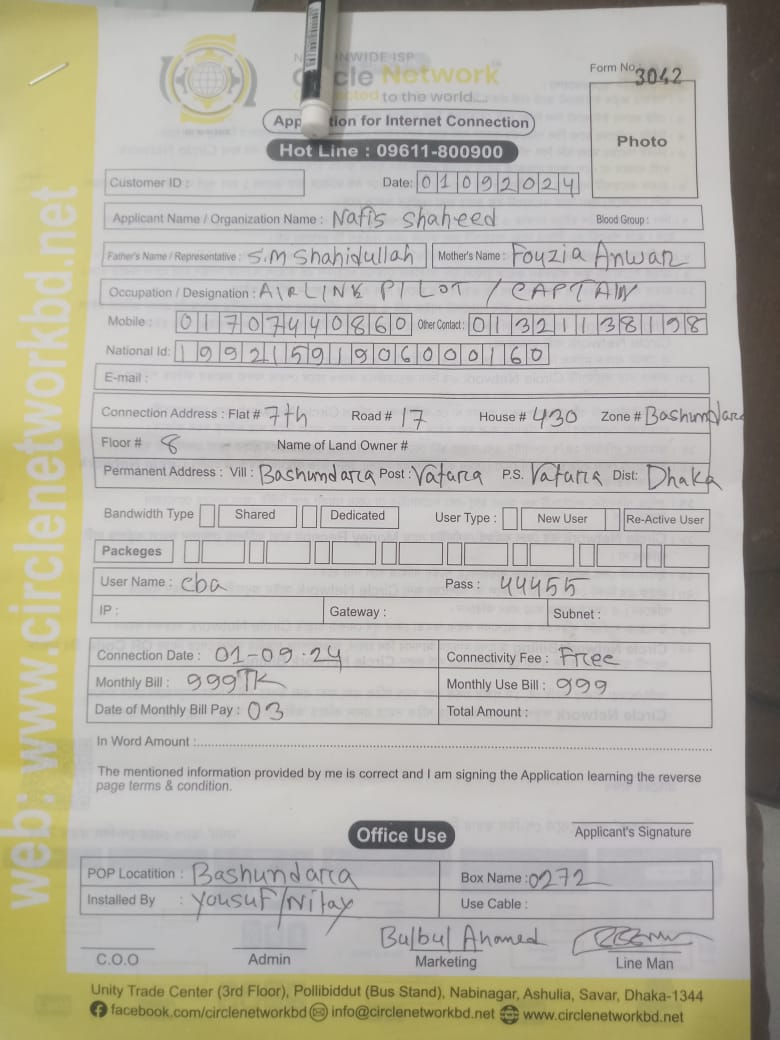 NIONWIDE ISP
Circle Network
connected to the world....
Form No. 3042
Application for Internet Connection
Photo
Hot Line : 09611-800900
Customer ID :
Date: 01092024
Applicant Name / Organization Name : Nafis Shaheed Blood Group :
Father's Name / Representative : S.M Shahidullah Mother's Name : Fouzia Anwar
Occupation / Designation : AIRLINE PILOT / CAPTAIN
Mobile : 01707440860 Other Contact : 01321138198
National Id: 19921591906000160
E-mail :
Connection Address : Flat # 7th Road # 17 House # 430 Zone # Bashundara
Floor # 8 Name of Land Owner #
Permanent Address : Vill : Bashundara Post : Vatara P.S. Vatara Dist: Dhaka
Bandwidth Type Shared Dedicated User Type : New User Re-Active User
Packeges
User Name : cba Pass : 44455
IP : Gateway : Subnet :
Connection Date : 01-09-24 Connectivity Fee : Free
Monthly Bill : 999TK Monthly Use Bill : 999
Date of Monthly Bill Pay : 03 Total Amount :
In Word Amount :
The mentioned information provided by me is correct and I am signing the Application learning the reverse
page terms & condition.
Applicant's Signature
Office Use
POP Locatition : Bashundara Box Name : 0272
Installed By : Yousuf/Nitay Use Cable :
Bulbul Ahamed
C.O.O Admin Marketing Line Man
Unity Trade Center (3rd Floor), Pollibiddut (Bus Stand), Nabinagar, Ashulia, Savar, Dhaka-1344
facebook.com/circlenetworkbd info@circlenetworkbd.net www.circlenetworkbd.net
web: www.circlenetworkbd.net